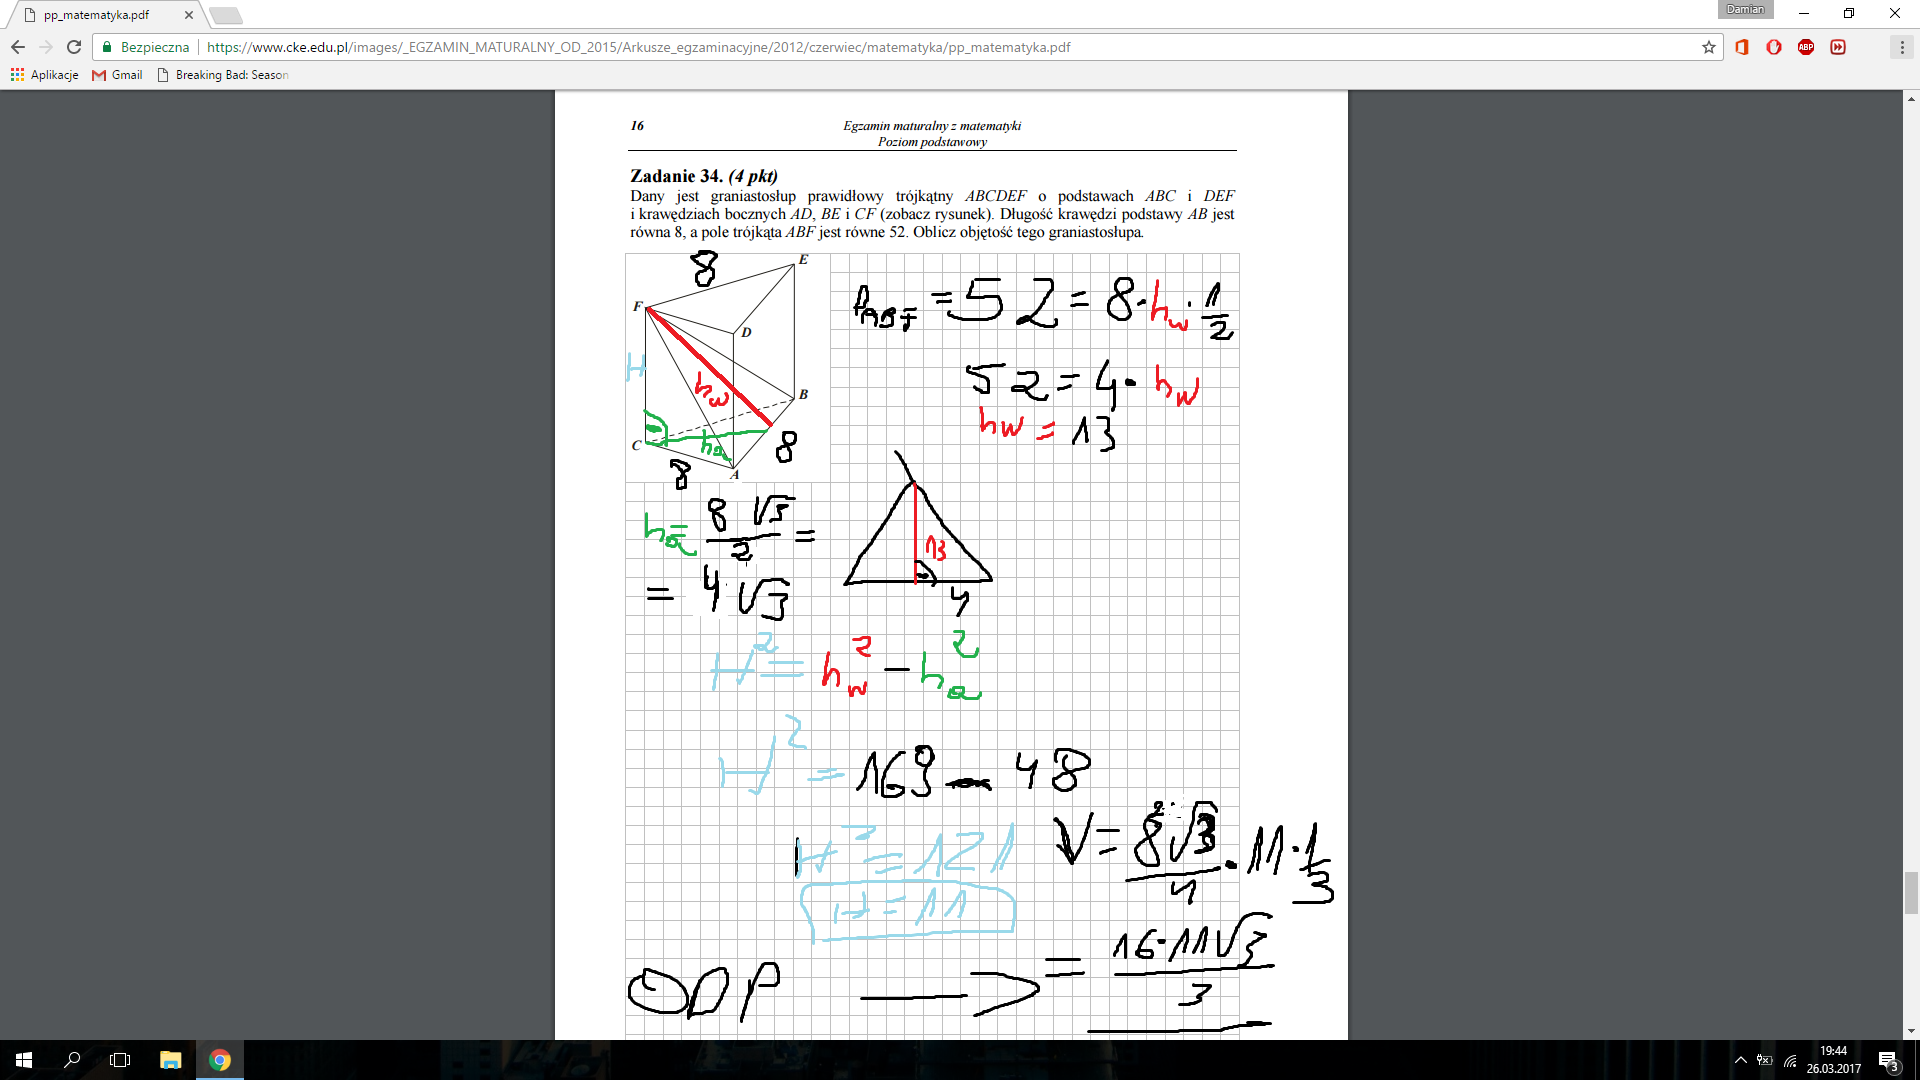 pp_matematyka.pdf
Damian
Bezpieczna https://www.cke.edu.pl/images/_EGZAMIN_MATURALNY_OD_2015/Arkusze_egzaminacyjne/2012/czerwiec/matematyka/pp_matematyka.pdf
ABP
Aplikacje Gmail Breaking Bad: Season
16 Egzamin maturalny z matematyki
Poziom podstawowy
Zadanie 34. (4 pkt)
Dany jest graniastosłup prawidłowy trójkątny ABCDEF o podstawach ABC i DEF
i krawędziach bocznych AD, BE i CF (zobacz rysunek). Długość krawędzi podstawy AB jest
równa 8, a pole trójkąta ABF jest równe 52. Oblicz objętość tego graniastosłupa.
8
E
F
D
H
hw
B
C
8
A
8
P ABF = 52 = 8 · hw · 1/2
52 = 4 · hw
hw = 13
8√3/2 =
= 4√3
13
4
H² = hw² −
H² = 169 − 48
H² = 121
H = 11
V = 8²√3/4 · 11 · 1/3
= 16·11√3/3
ODP
19:44
26.03.2017
3